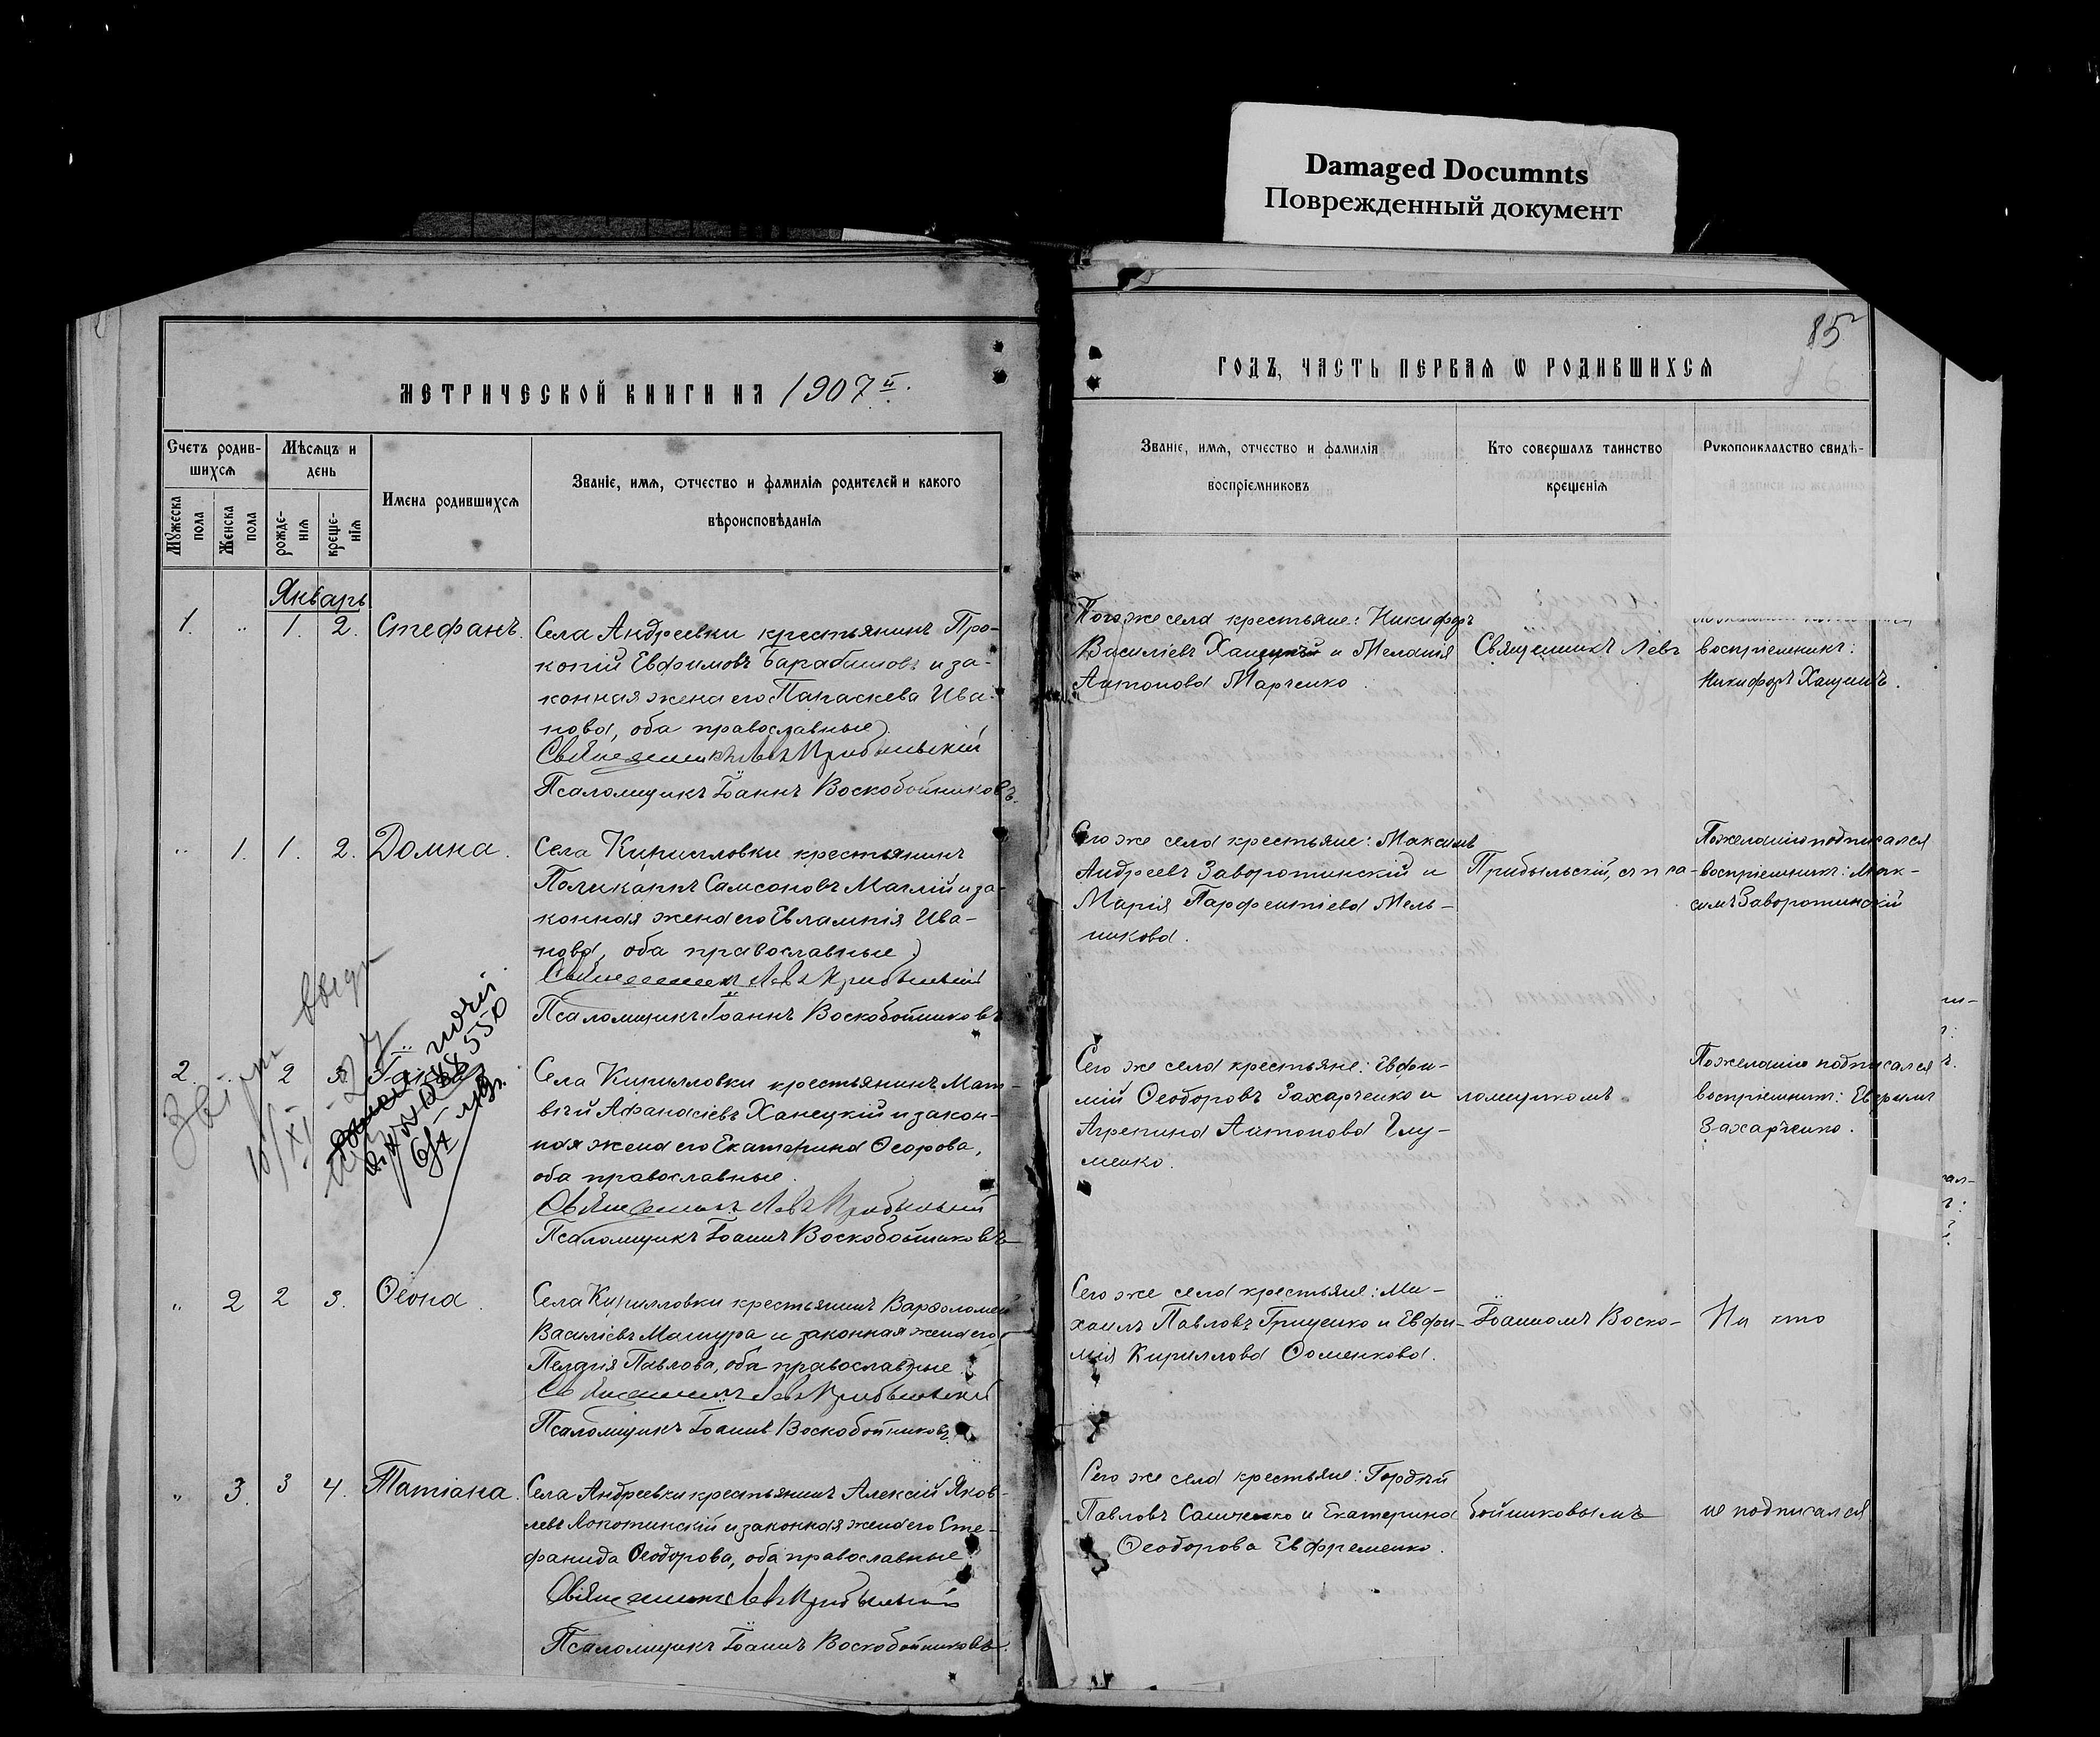 Damaged Documnts
Поврежденный документ
85
МЕТРИЧЕСКОЙ КНИГИ НА 1907й.
ГОДЪ, ЧАСТЬ ПЕРВАЯ Ѡ РОДИВШИХСЯ
Счетъ родив-
шихся
Мужеска
пола
Женска
пола
Мѣсяцъ и
день
рожде-
нія
креще-
нія
Имена родившихся
Званіе, имя, отчество и фамилія родителей и какого
вѣроисповѣданія
Званіе, имя, отчество и фамилія
воспріемниковъ
Кто совершалъ таинство
крещенія
Рукоприкладство свидѣ-
Январь
1. „ 1. 2. Стефанъ.
Села Андреевки крестьянинъ Про-
копій Евфимовъ Барабашовъ и за-
конная жена его Параскева Ива-
нова, оба православные
Священникъ Левъ Прибыльскій
Псаломщикъ Іоаннъ Воскобойниковъ.
Того же села крестьяне: Никифоръ
Василіевъ и Меланія
Антонова Марченко.
Священникъ Левъ
воспріемникъ:
Никифоръ
„ 1. 1. 2. Домна.
Села Кирилловки крестьянинъ
Поликарпъ Самсоновъ и за-
конная жена его Евлампія Ива-
нова, оба православные
Священникъ Левъ Прибыльскій
Псаломщикъ Іоаннъ Воскобойниковъ
Сего же села крестьяне: Максимъ
Андреевъ Заворотинскій и
Марія Парфентіева Мель-
никова.
Прибыльскій, съ пса-
По желанію подписался
воспріемникъ: Мак-
симъ Заворотинскій
2. „ 2 3
Села Кирилловки крестьянинъ Мат-
вѣй Афанасіевъ Ханецкій и закон-
ная жена его Екатерина Ѳеорова,
оба православные.
Священникъ Левъ Прибыльскій
Псаломщикъ Іоаннъ Воскобойниковъ
Сего же села крестьяне: Евфи-
мій Ѳеодоровъ Захарченко и
Агрепина Антонова Глу-
менко.
ломщикомъ
По желанію подписался
воспріемникъ: Евфимъ
Захарченко.
„ 2 2 3. Ѳеона.
Села Кирилловки крестьянинъ Варфоломей
Василіевъ Машура и законная жена его
Пелагія Павлова, оба православные.
Священникъ Левъ Прибыльскій
Псаломщикъ Іоаннъ Воскобойниковъ
Сего же села крестьяне: Ми-
хаилъ Павловъ Гриценко и Евфи-
мія Кириллова Ѳоменкова.
Іоанномъ Воско-
Ни кто
„ 3. 3 4. Татіана.
Села Андреевки крестьянинъ Алексій Яков-
левъ Локотинскій и законная жена его Сте-
фанида Ѳеодорова, оба православные
Священникъ Левъ Прибыльскій
Псаломщикъ Іоаннъ Воскобойниковъ.
Сего же села крестьяне: Гордѣй
Павловъ и Екатерина
Ѳеодорова Евфременко.
бойниковымъ
не подписался